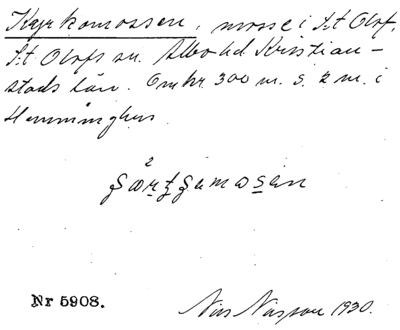 Kyrkomossen, mosse i S:t Olof,
S:t Olofs sn. Albo hd Kristian-
stads län. Omkr. 300 m. s.
Hemminghus.
Nr 5908.
Nils Nilsson 1930.